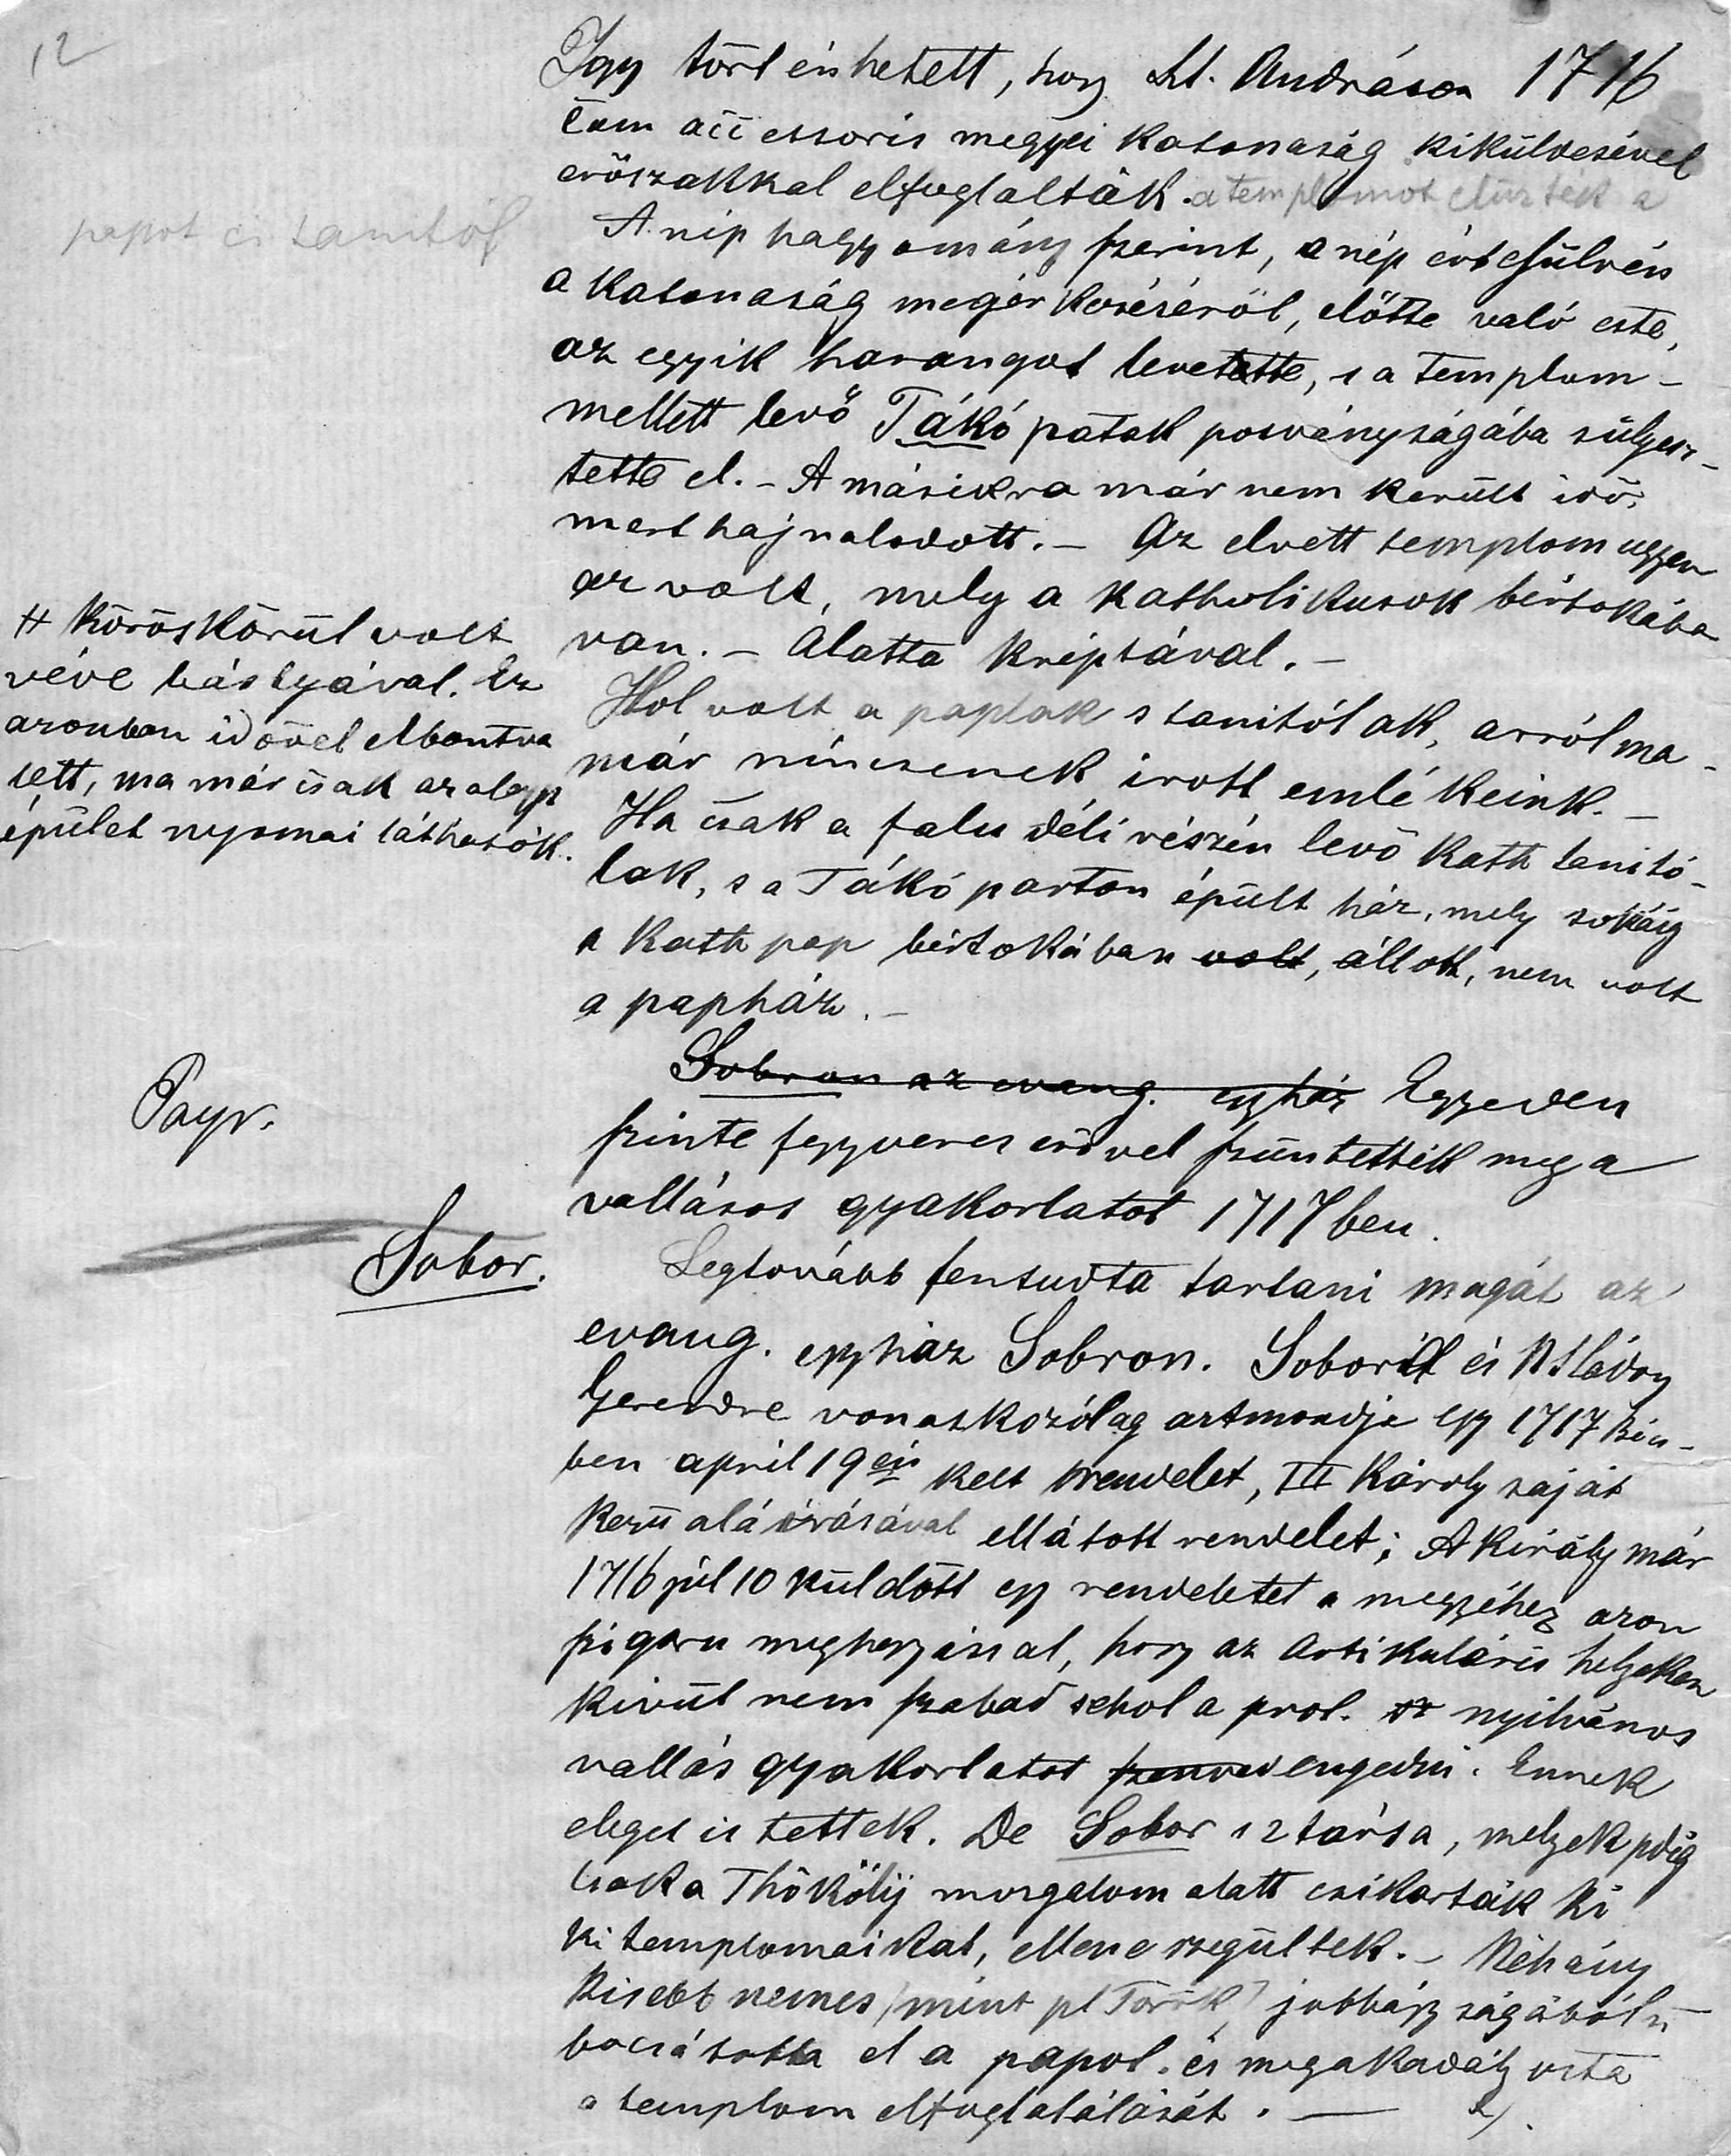 12
Igy történhetett, hogy Szt. Andráson 1716
Com accessoris megyei katonaság kiküldésével
erőszakkal elfoglalták. a templomot elűzték a
papot és tanitót
A nép hagyomány szerint, a nép értesülvén
a katonaság megérkezéséről, előtte való este,
az egyik harangot levetette, s a templom-
mellett levő Tákó patak posványságába sülyesz-
tette el. – A másikra már nem került idő,
mert hajnalodott. – Az elvett templom ugyan
az volt, mely a katholikusok birtokába
van. – Alatta kriptával. –
# Köröskörül volt
véve bástyával. Ez
azonban idővel elbontva
lett, ma már csak az alap
épület nyomai láthatók.
Hol volt a paplak s tanitólak, arról ma-
már nincsenek irott emlékeink. –
Ha csak a falu déli részén levő Kath tanitó-
lak, s a Tákó parton épült ház, mely sokáig
a Kath pap birtokában volt, állott, nem volt
a papház. –
Sobron az evang. egyház Egyeden
Payr.
szinte fegyveres erővel szüntették meg a
vallásos gyakorlatot 1717ben.
Sobor.
Legtovább fentudta tartani magát az
evang. egyház Sobron. Soboról és N Ládony
Gerendre vonatkozólag azt mondja egy 1717 Bécs-
ben april 19én kelt rendelet, III Károly saját
kezü aláírásával ellátott rendelet; A király már
1716 júl 10 küldött egy rendeletet a megyéhez azon
szigoru meghagyással, hogy az Artikuláris helyeken
kivül nem szabad sehol a prot. nyilvános
vallás gyakorlatot szenved engedni. Ennek
eleget is tettek. De Sobor s 2 társa, melyek pdig
csak a Thököly mozgalom alatt csikarták ki
ki templomaikat, ellene szegültek. – Néhány
kisebb nemes (mint pl Török) jobbágyságából
bocsátotta el a papot. és megakadályozta
a templom elfoglalálását. – 2).